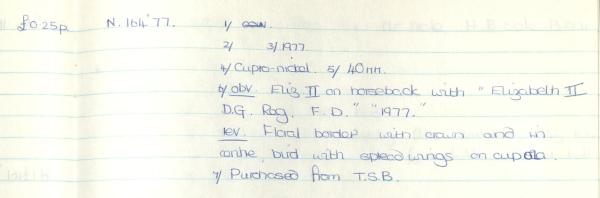 £0.25p. N.164'77. 1/ coin.
2/ 3/1977.
4/ Cupro-nickel. 5/ 40mm.
6/ obv. Eliz II on horseback with "Elizabeth II
D.G. Reg. F.D." "1977."
rev. Floral border with crown and in
centre, bird with spread wings on cupola.
7/ Purchased from T.S.B.